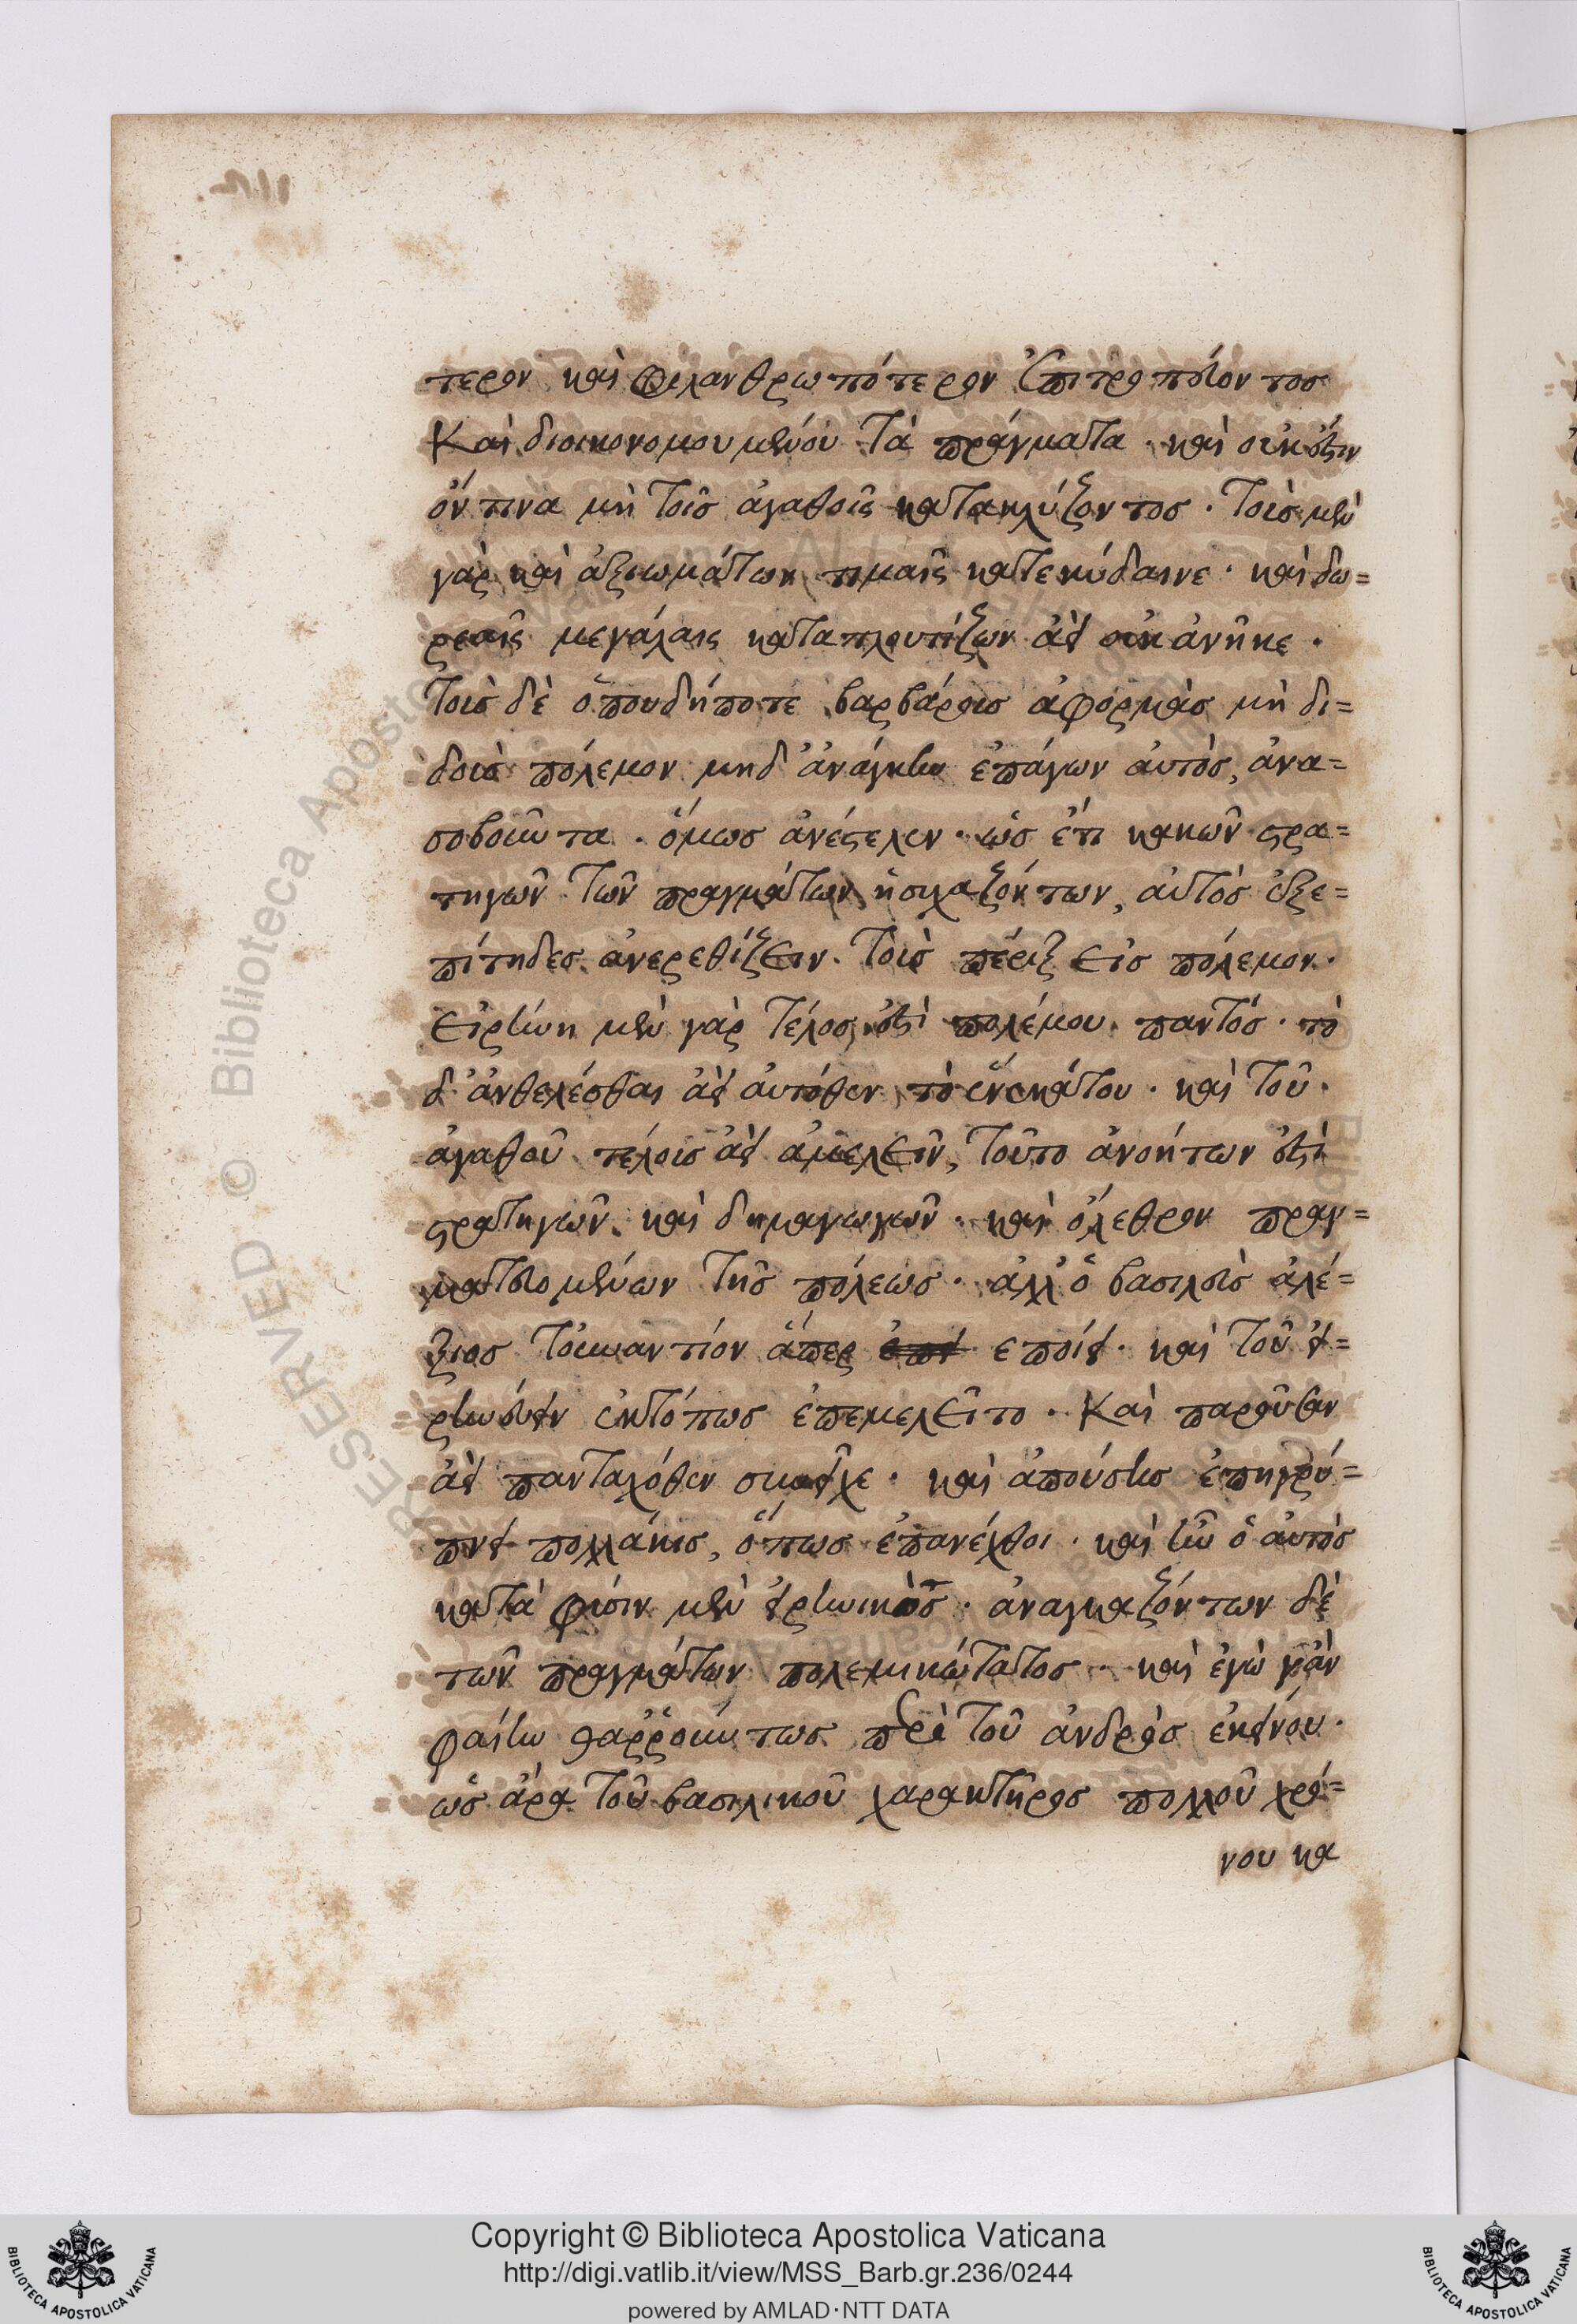 τερον καὶ φιλανθρωπότερον ἐπιτροπεύοντος
καὶ διοικονομουμένου τὰ πράγματα · καὶ οὐκ ἔστιν
ὅντινα μὴ τοῖς ἀγαθοῖς κατακλύζοντος · τοὺς μὲν
γὰρ καὶ ἀξιωμάτων τιμαῖς κατεκύδαινε · καὶ δω=
ρεαῖς μεγάλαις καταπλουτίζων ἀεὶ οὐκ ἀνῆκε ·
τοὺς δὲ ὁπουδήποτε βαρβάρους ἀφορμὰς μὴ δι=
δοὺς πόλεμον μηδ' ἀνάγκην ἐπάγων αὐτὸς, ἀνα=
σοβοῦντα · ὅμως ἀνέστελεν · ὡς ἔτι κακῶν στρα=
τηγῶν τῶν πραγμάτων ἡσυχαζόντων, αὐτὸς ἐξε=
πίτηδες ἀνερεθίζειν · τοὺς πέριξ εἰς πόλεμον ·
εἰρήνη μὲν γὰρ τέλος ἐστὶ πολέμου παντός · τὸ
δ' ἀνθελέσθαι ἀεὶ αὐτόθεν τὸ ἕνεκά του · καὶ τοῦ ·
ἀγαθοῦ τέλους ἀεὶ ἀμελεῖν, τοῦτο ἀνοήτων ἐστὶ
στρατηγῶν καὶ δημαγωγῶν · καὶ ὄλεθρον πραγ=
ματευομένων τῆς πόλεως · ἀλλ' ὁ βασιλεὺς ἀλέ=
ξιος τοὐναντίον ἅπερ ἐποίει · καὶ τοῦ εἰ=
ρηνεύειν ἐκτόπως ἐπεμελεῖτο · Καὶ παροῦσαν
ἀεὶ πανταχόθεν συνεῖχε · καὶ ἀπούσης ἐπηγρύ=
πνει πολλάκις, ὅπως ἐπανέλθοι · καὶ ἦν ὁ αὐτὸς
κατὰ φύσιν μὲν εἰρηνικὸς · ἀναγκαζόντων δὲ
τῶν πραγμάτων πολεμικώτατος · καὶ ἐγὼ γ' ἂν
φαίην θαῤῥούντως περὶ τοῦ ἀνδρὸς ἐκείνου ·
ὡς ἄρα τοῦ βασιλικοῦ χαρακτῆρος πολλοῦ χρό=
νου κα
Copyright © Biblioteca Apostolica Vaticana
http://digi.vatlib.it/view/MSS_Barb.gr.236/0244
powered by AMLAD·NTT DATA